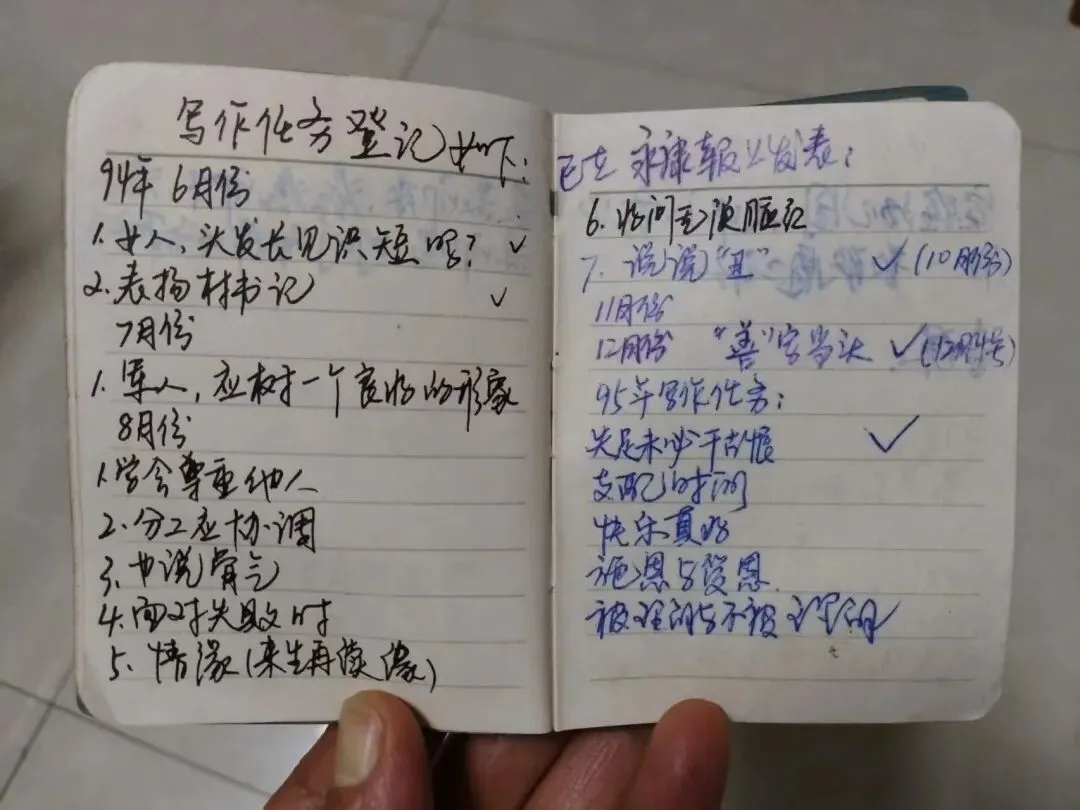 写作任务登记如下:
94年6月份
1. 女人,头发长见识短吗? ✓
2. 表扬村书记 ✓
7月份
1. 军人,应树一个良好的形象
8月份
1. 学会尊重他人
2. 分工应协调
3. 也说骨气
4. 面对失败时
5. 情缘(来生再续缘)
已在 报上发表:
6.
7. 说说“丑” ✓(10月份)
11月份
12月份 “善”字当头 ✓(12月
95年写作任务:
失足未必千古恨 ✓
支配时间
快乐真好
施恩与受恩
被理解与不被理解